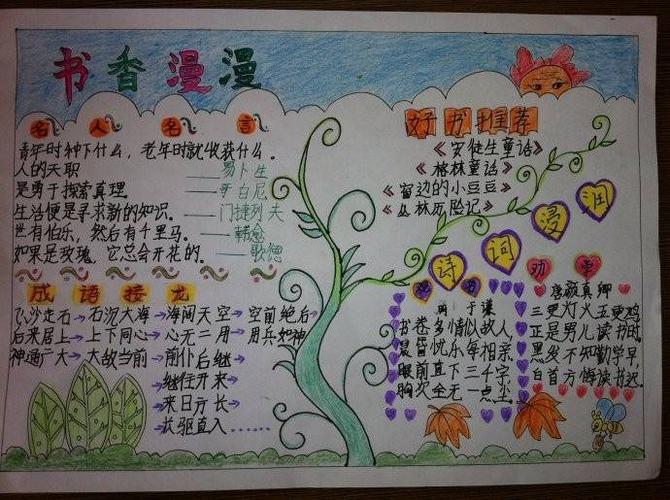 书香漫漫
名人名言
青年时种下什么，老年时就收获什么。
——易卜生
人的天职
是勇于探索真理
——哥白尼
生活便是寻求新的知识。——门捷列夫
世有伯乐，然后有千里马。——韩愈
如果是玫瑰，它总会开花的。——歌德
成语接龙
飞沙走石→石沉大海→海阔天空→空前绝后→
后来居上→上下同心→心无二用→用兵如神→
神通广大→大敌当前→前仆后继→
继往开来→
来日方长→
长驱直入……
好书推荐
《安徒生童话》
《格林童话》
《窗边的小豆豆》
《丛林历险记》
诗词浸润
观书
明 于谦
书卷多情似故人，
晨昏忧乐每相亲。
眼前直下三千字，
胸次全无一点尘。
劝学
唐颜真卿
三更灯火五更鸡，
正是男儿读书时。
黑发不知勤学早，
白首方悔读书迟。